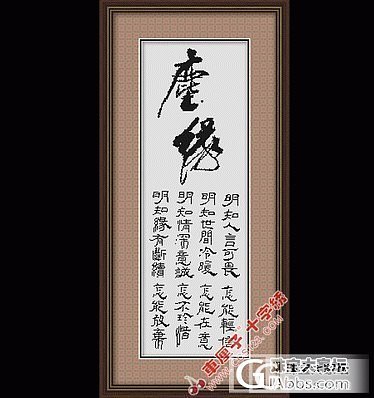 塵緣
明知人言可畏 怎能輕信
明知世間冷暖 怎能在意
明知情深意誠 怎不珍惜
明知緣有斷續 怎能放棄
車厘子十字绣